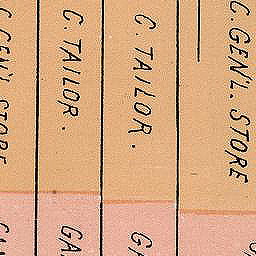 C. GEN'L. STORE
C. TAILOR.
C. TAILOR.
C. GEN'L. STORE